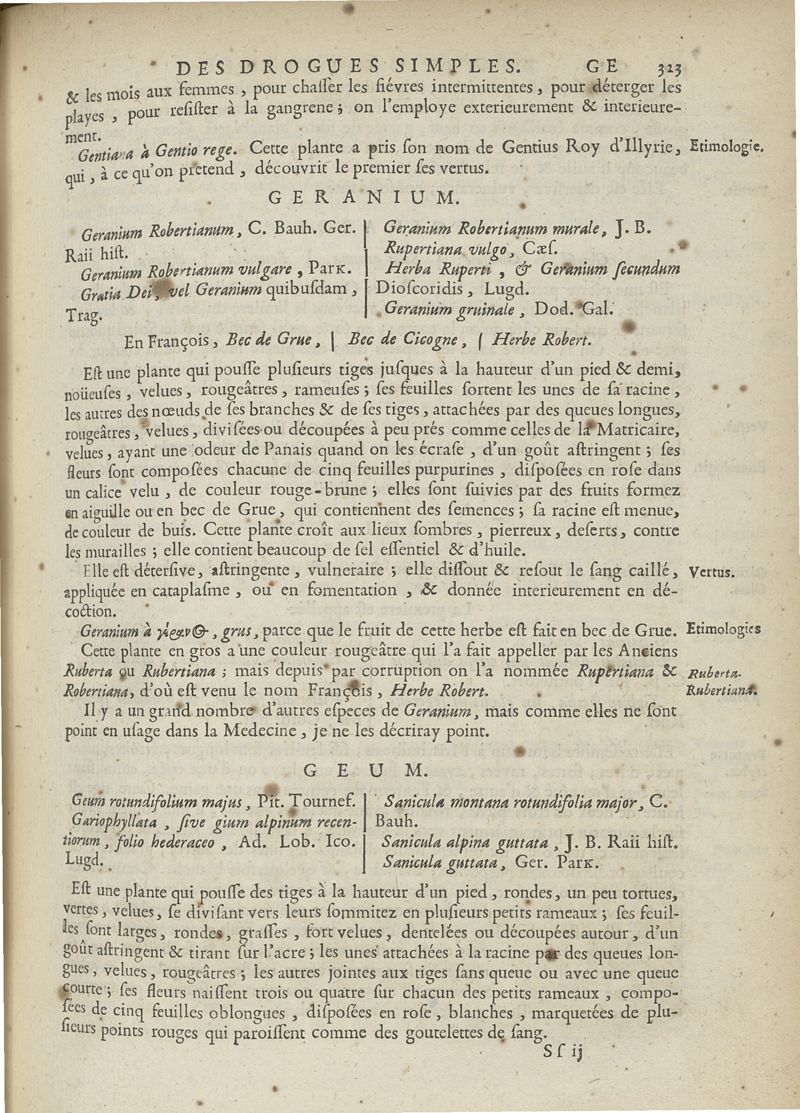 DES DROGUES SIMPLES. GE 323
& les mois aux femmes, pour chaſſer les fiévres intermittentes, pour déterger les
playes, pour reſiſter à la gangrene; on l'employe exterieurement & interieure-
ment.
Gentiana à Gentio rege. Cette plante a pris ſon nom de Gentius Roy d'Illyrie, Etimologie.
qui, à ce qu'on prétend, découvrit le premier ſes vertus.
GERANIUM.
Geranium Robertianum, C. Bauh. Ger.
Raii hiſt.
Geranium Robertianum vulgare, Park.
Gratia Dei, vel Geranium quibuſdam,
Trag.
Geranium Robertianum murale, J. B.
Rupertiana vulgo, Cæſ.
Herba Ruperti, & Geranium ſecundum
Dioſcoridis, Lugd.
Geranium gruinale, Dod. Gal.
En François, Bec de Grue, | Bec de Cicogne, | Herbe Robert.
Eſt une plante qui pouſſe pluſieurs tiges juſques à la hauteur d'un pied & demi,
noüeuſes, velues, rougeâtres, rameuſes; ſes feuilles ſortent les unes de ſa racine,
les autres des nœuds de ſes branches & de ſes tiges, attachées par des queues longues,
rougeâtres, velues, diviſées ou découpées à peu prés comme celles de la Matricaire,
velues, ayant une odeur de Panais quand on les écraſe, d'un goût aſtringent; ſes
fleurs ſont compoſées chacune de cinq feuilles purpurines, diſpoſées en roſe dans
un calice velu, de couleur rouge-brune; elles ſont ſuivies par des fruits formez
en aiguille ou en bec de Grue, qui contiennent des ſemences; ſa racine eſt menue,
de couleur de buis. Cette plante croît aux lieux ſombres, pierreux, deſerts, contre
les murailles; elle contient beaucoup de ſel eſſentiel & d'huile.
Elle eſt déterſive, aſtringente, vulneraire; elle diſſout & reſout le ſang caillé, Vertus.
appliquée en cataplaſme, ou en fomentation, & donnée interieurement en dé-
coction.
Geranium à γέρανος, grus, parce que le fruit de cette herbe eſt fait en bec de Grue. Etimologies
Cette plante en gros a une couleur rougeâtre qui l'a fait appeller par les Anciens
Ruberta ou Rubertiana; mais depuis par corruption on l'a nommée Rupertiana & Ruberta.
Robertiana, d'où eſt venu le nom François, Herbe Robert. Rubertiana.
Il y a un grand nombre d'autres eſpeces de Geranium, mais comme elles ne ſont
point en uſage dans la Medecine, je ne les décriray point.
GEUM.
Geum rotundifolium majus, Pit. Tournef.
Gariophyllata, ſive gium alpinum recen-
tiorum, folio hederaceo, Ad. Lob. Ico.
Lugd.
Sanicula montana rotundifolia major, C.
Bauh.
Sanicula alpina guttata, J. B. Raii hiſt.
Sanicula guttata, Ger. Park.
Eſt une plante qui pouſſe des tiges à la hauteur d'un pied, rondes, un peu tortues,
vertes, velues, ſe diviſant vers leurs ſommitez en pluſieurs petits rameaux; ſes feuil-
les ſont larges, rondes, graſſes, fort velues, dentelées ou découpées autour, d'un
goût aſtringent & tirant ſur l'acre; les unes attachées à la racine par des queues lon-
gues, velues, rougeâtres; les autres jointes aux tiges ſans queue ou avec une queue
courte; ſes fleurs naiſſent trois ou quatre ſur chacun des petits rameaux, compo-
ſées de cinq feuilles oblongues, diſpoſées en roſe, blanches, marquetées de plu-
ſieurs points rouges qui paroiſſent comme des goutelettes de ſang.
Sſ ij